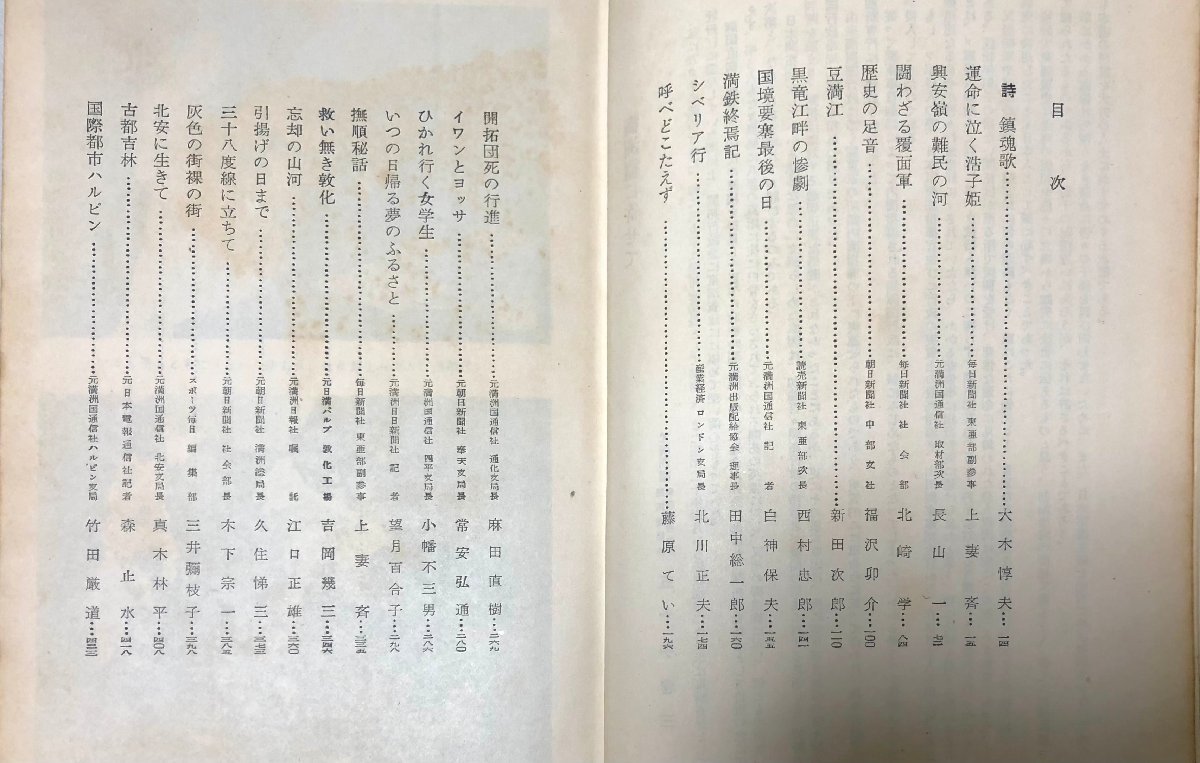 目次
詩 鎮魂歌……大木惇夫…一四
運命に泣く浩子姫……毎日新聞社 東亜部副参事 上妻斉…一五
興安嶺の難民の河……元満洲国通信社 取材部次長 長山一…七二
闘わざる覆面軍……毎日新聞社 社会部 北崎学…八四
歴史の足音……朝日新聞社 中部支社 福沢卯介…一〇〇
豆満江……新田次郎…一二〇
黒竜江畔の惨劇……読売新聞社 東亜部次長 西村忠郎…一四一
国境要塞最後の日……元満洲国通信社 記者 白神保夫…一五五
満鉄終焉記……元満洲出版配給協会 理事長 田中総一郎…一六〇
シベリア行……産業経済 ロンドン支局長 北川正夫…一七四
呼べどこたえず……藤原てい…一九六
開拓団死の行進……元満洲国通信社 通化支局長 麻田直樹…二六九
イワンとヨッサ……元朝日新聞社 奉天支局長 常安弘通…二八〇
ひかれ行く女学生……元満洲国通信社 四平支局長 小幡不三男…二八六
いつの日帰る夢のふるさと……元満洲日日新聞社 記者 望月百合子…二九八
撫順秘話……毎日新聞社 東亜部副参事 上妻斉…三三五
救い無き敦化……元日満パルプ 敦化工場 吉岡幾三…三四六
忘却の山河……元満洲日報社 嘱託 江口正雄…三六〇
引揚げの日まで……元朝日新聞社 満洲総局長 久住悌三…三七三
三十八度線に立ちて……元朝日新聞社 社会部長 木下宗一…三八五
灰色の街裸の街……スポーツ毎日 編集部 三井彌枝子…三九八
北安に生きて……元満洲国通信社 北安支局長 真木林平…四〇八
古都吉林……元日本電報通信社記者 森止水…四一八
国際都市ハルビン……元満洲国通信社ハルビン支局 竹田厳道…四三三